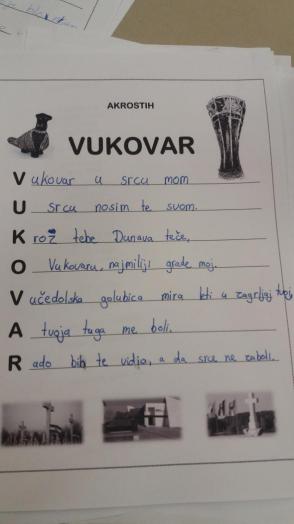 AKROSTIH
VUKOVAR
Vukovar u srcu mom
U srcu nosim te svom.
Kroz tebe Dunava teče,
O Vukovaru, najmiliji grade moj.
Vučedolska golubica mira leti u zagrljaj tvoj,
A tvoja tuga me boli.
Rado bih te vidio, a da srce ne zaboli.